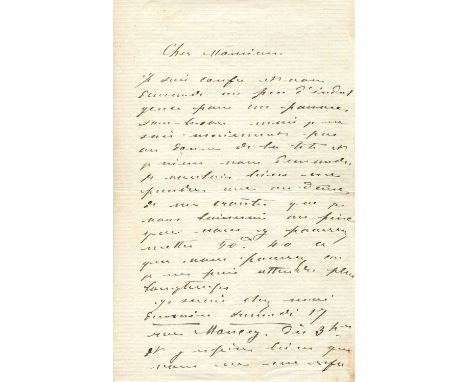 Cher Monsieur
Je suis confus et vous
demande un peu d'indul
gence pour un pauvre
mais je ne
sais vraiment pas
où donner de la tête et
je viens vous demander
Je voudrais bien me
un deux
de mes que je
vous laisserai au prix
que vous y pourrez
mettre 50. 40 ce
que vous pourrez
je ne puis attendre plus
longtemps
Je serai chez moi
demain Samedi 17
rue Moncey. Dès 3 hes
Et j'espère bien que
vous ne me refu